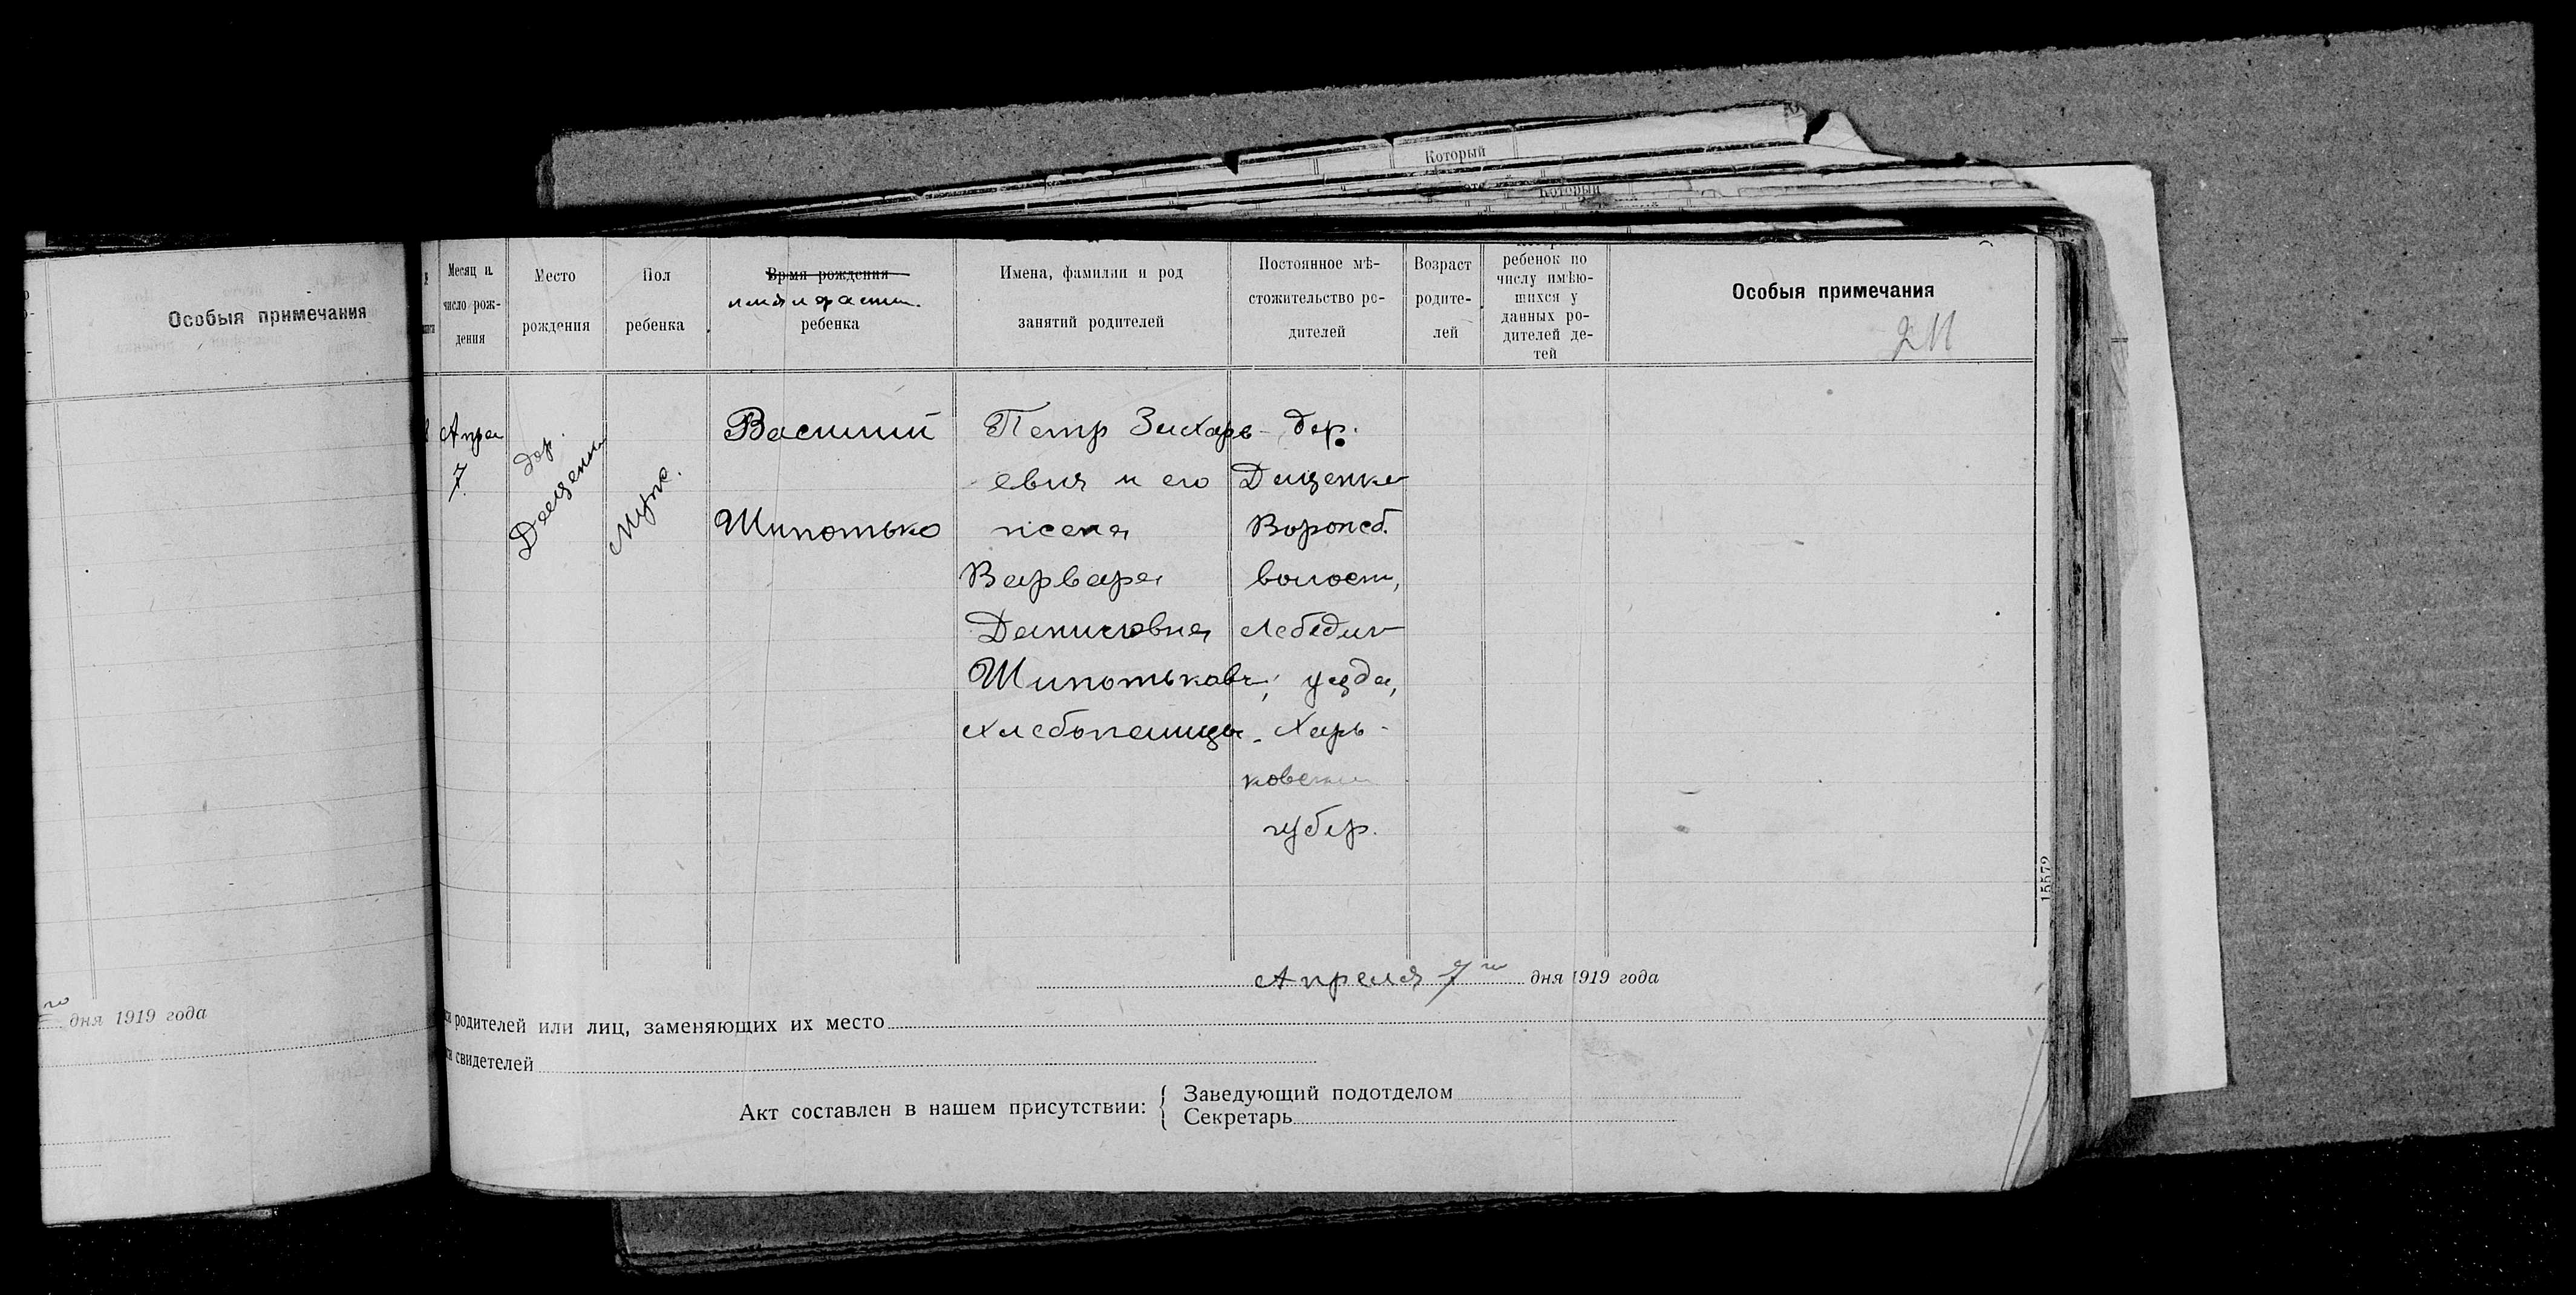 Который
Который
Особыя примечания
дня 1919 года
Месяц и число рож-
дения
Место
рождения
Пол
ребенка
Время рождения
имя и фамил.
ребенка
Имена, фамилии и род
занятий родителей
Постоянное мѣ-
стожительство ро-
дителей
Возраст
родите-
лей
ребенок по
числу имѣю-
щихся у
данных ро-
дителей де-
тей
Особыя примечания
211
Апрел
7
дер.
Дащенки
Муж.
Василий
Шипотько
Петр Захарь-
евич и его
жена
Варвара
Даниловна
Шипотьковы,
хлебопашцы.
дер.
Дащенки
Ворожб.
волости,
Лебедин
уезда,
Харь-
ковской
губер.
15572
Апреля 7го дня 1919 года
родителей или лиц, заменяющих их место
свидетелей
Акт составлен в нашем присутствии:
Заведующий подотделом
Секретарь